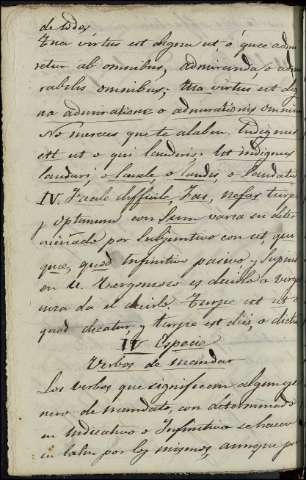 de todos
Ista virtus est digna ut, o quæ admi
retur ab omnibus, admiranda, o admi
rabilis omnibus; Ista virtus est dig
na admiratione o admirationis omnium
No mereces que te alaben. Indignus
est ut o qui lauderis; est indignus
laudari, o laude o laudis, o laudatu
IV. Facile difficile, Fas, nefas turpe
y optimum con Sum varia su deter
minado por Subjuntivo con ut, quia
quæ, quod Infinitivo pasivo y Supino
en u. Vergonzoso es decirlo o verg
uenza da el decirlo. Turpe est ut o
quod dicatur, y turpe est dici o dictu
IV Especie
Verbos de mandar
Los verbos que significan algun ge
nero de mandato, con determinado
en Indicativo o Infinitivo se hacen
en latin por los mismos, aunque